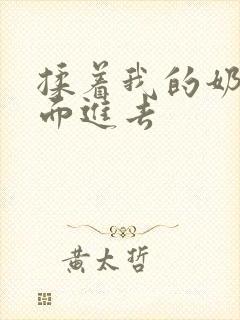 揉着我的奶
而进去
黄太哲